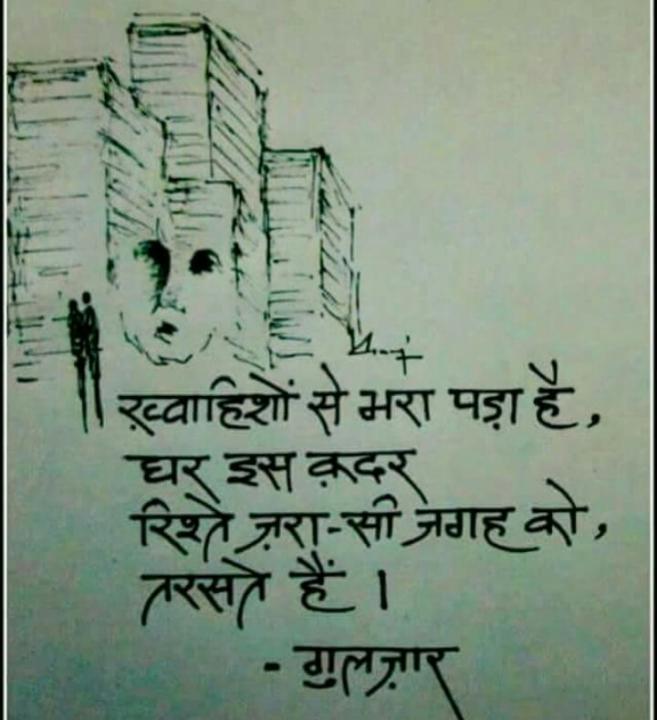 ख़्वाहिशों से भरा पड़ा है,
घर इस क़दर
रिश्ते ज़रा-सी जगह को,
तरसते हैं।
- गुलज़ार